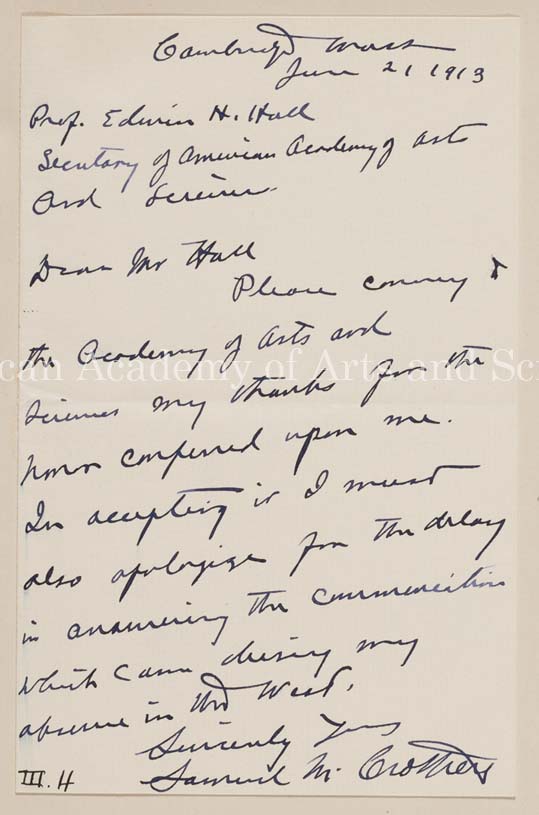 Cambridge Mass
June 21 1913
Prof. Edwin H. Hall
Secretary of American Academy of Arts
and Sciences.
Dear Mr Hall
Please convey to
the Academy of Arts and
Sciences my thanks for the
honor conferred upon me.
In accepting it I must
also apologize for the delay
in answering the communication
which came during my
absence in the West.
Sincerely Yours
Samuel M. Crothers
III. H
can Academy of Arts and Sci